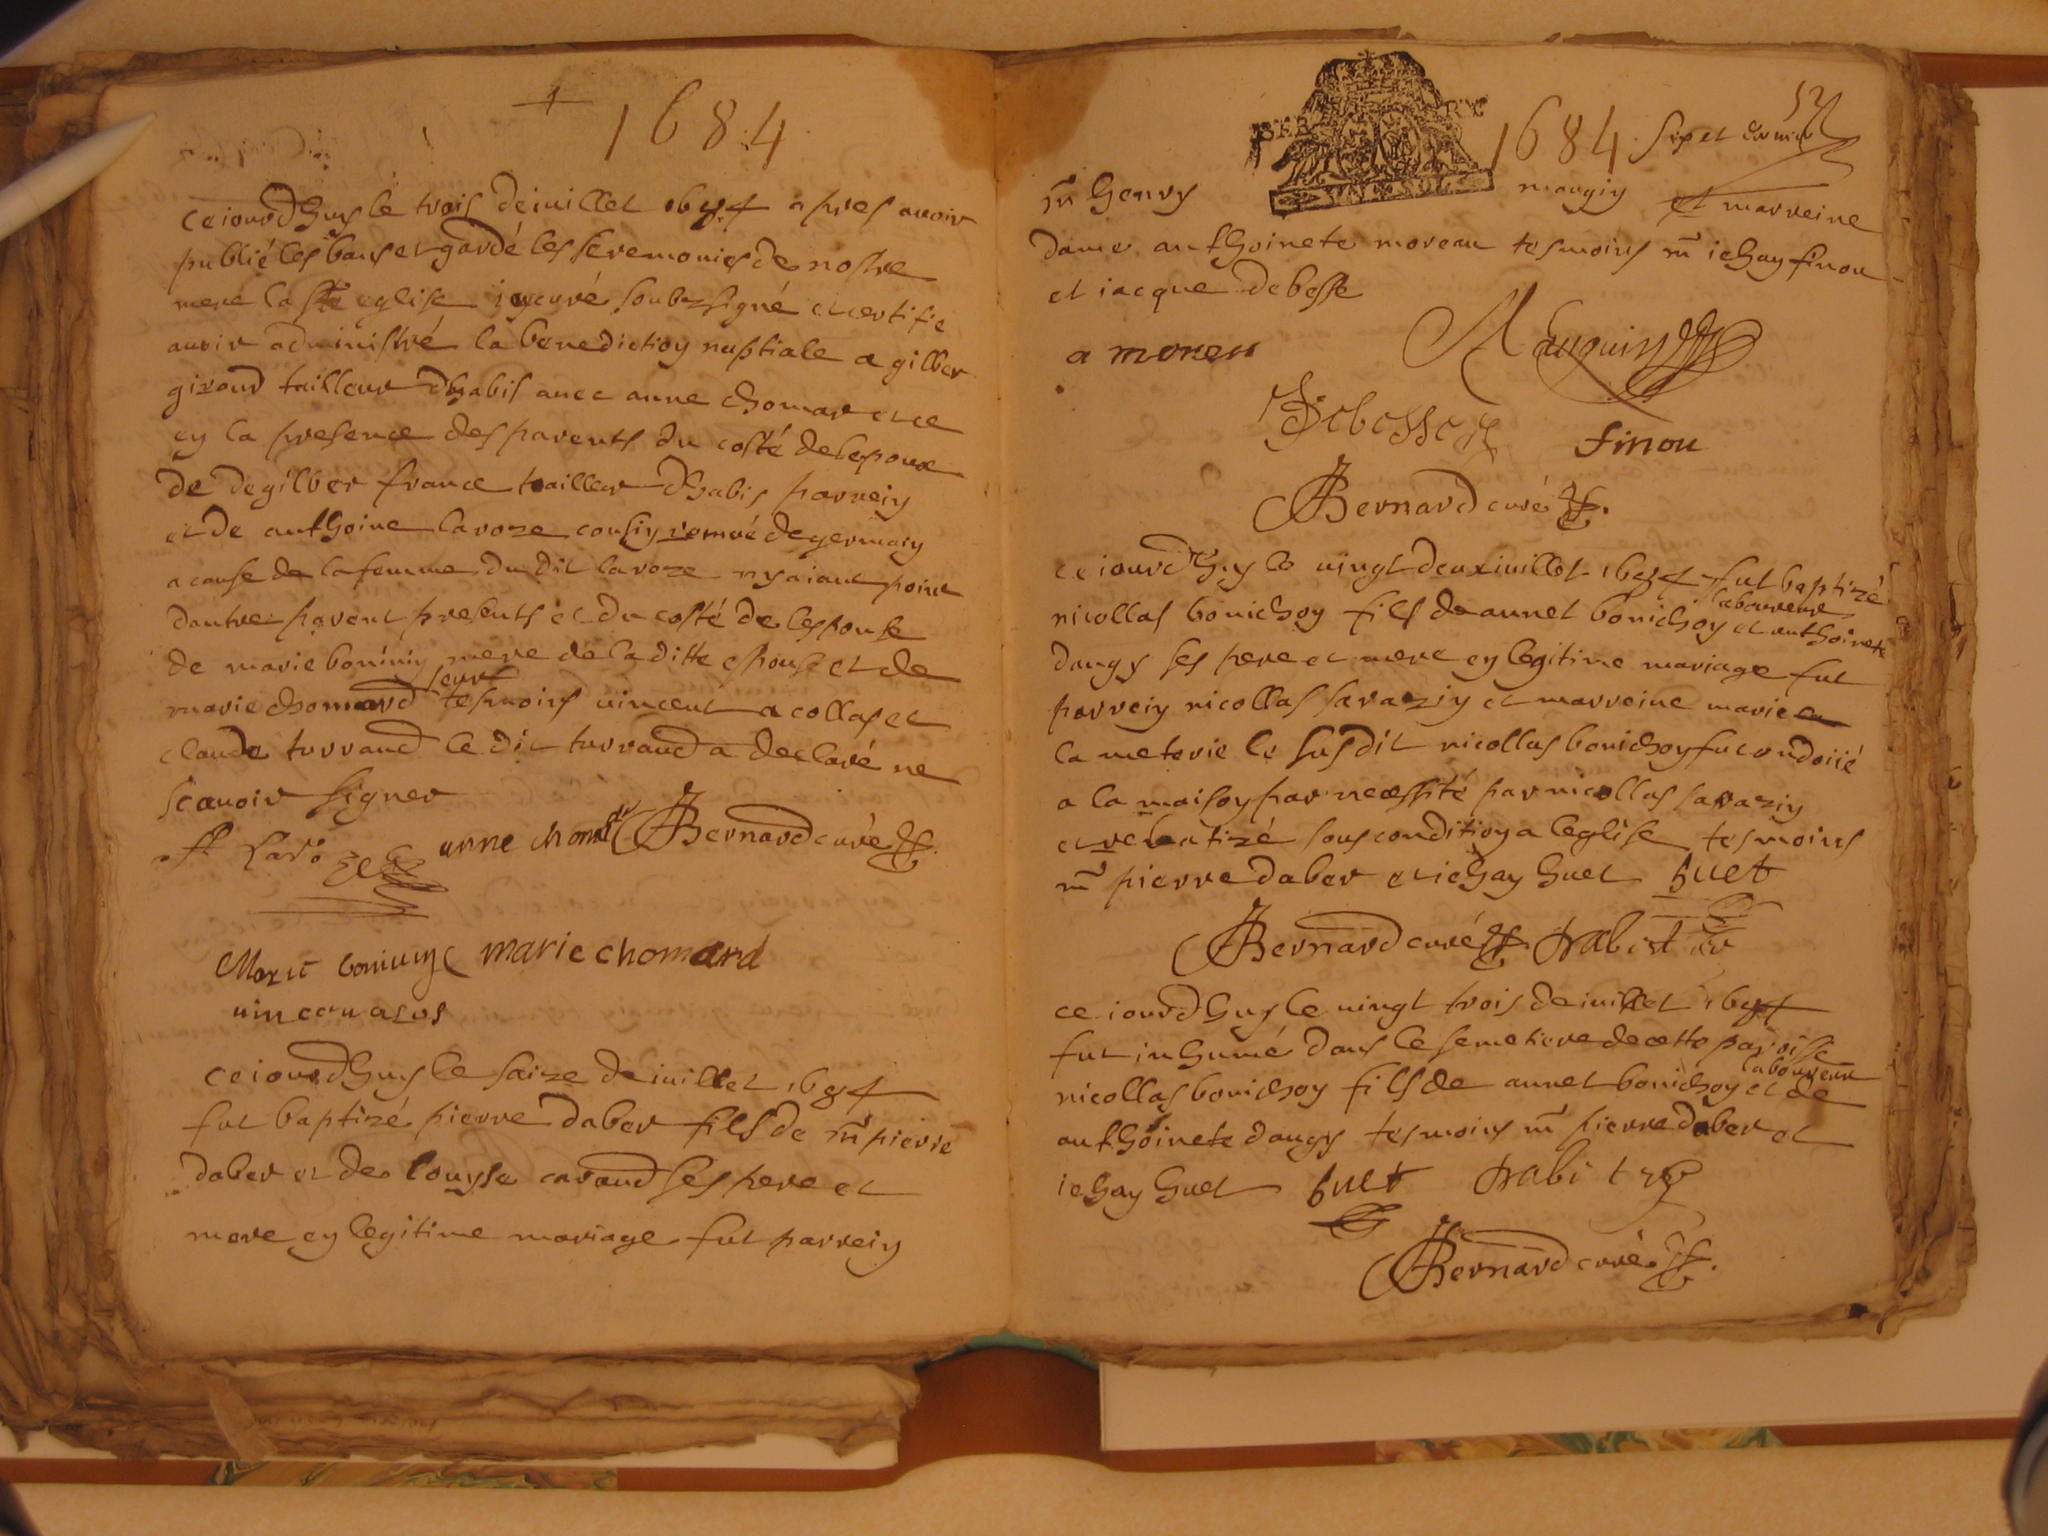 1684
ce iourd huy le trois de iuillet 1684 apres avoir
publié les bans et gardé les seremonies de nostre
mere la ste eglise ie curé soubzsigné et certifie
avoir administré la benediction nuptiale a gilber
giroud tailleur dhabis avec anne chomar et ce
en la presence des parents du costé de lepoux
de de gilber france tailleur dhabis parrein
et de anthoine laroze cousin remué de germain
a cause de la femme du dit laroze nyaiant point
dautre parent presents et du costé de lespouse
de marie bominin mere de la ditte espouse et de
marie chomard seur tesmoins vincent a collas et
claude turraud le dit turraud a declaré ne
scavoir signer
A Laro anne chomar Bernard curé
marie chomard
ce iourd huy le saize de iuillet 1684
fut baptizé pierre daber fils de m pierre
daber et de louyse caraud ses pere et
mere en legitime mariage fut parrein
52
1684
m henry maugin et marreine
dame anthoinete moreau tesmoins m iehan finou
et iacque debesse
a moreu Mauguin
Debesse finou
Bernard curé
ce iourd huy le vingt deux iuillet 1684 fut baptizé
nicollas bonichon fils de annet bonichon laboureur et anthoinete
dangy ses pere et mere en legitime mariage fut
parrein nicollas sarazin et marreine marie
la meterie le susdit nicollas bonichon fut ondoiié
a la maison par necessité par nicollas sarazin
et rebatizé sous condition a leglise tesmoins
m pierre daber et iehan huet huet
Bernard curé
ce iourd huy le vingt trois de iuillet 1684
fut inhumé dans le semetiere de cette paroisse
nicollas bonichon fils de annet bonichon laboureur et de
anthoinete dangy tesmoins m pierre daber et
iehan huet huet
Bernard curé